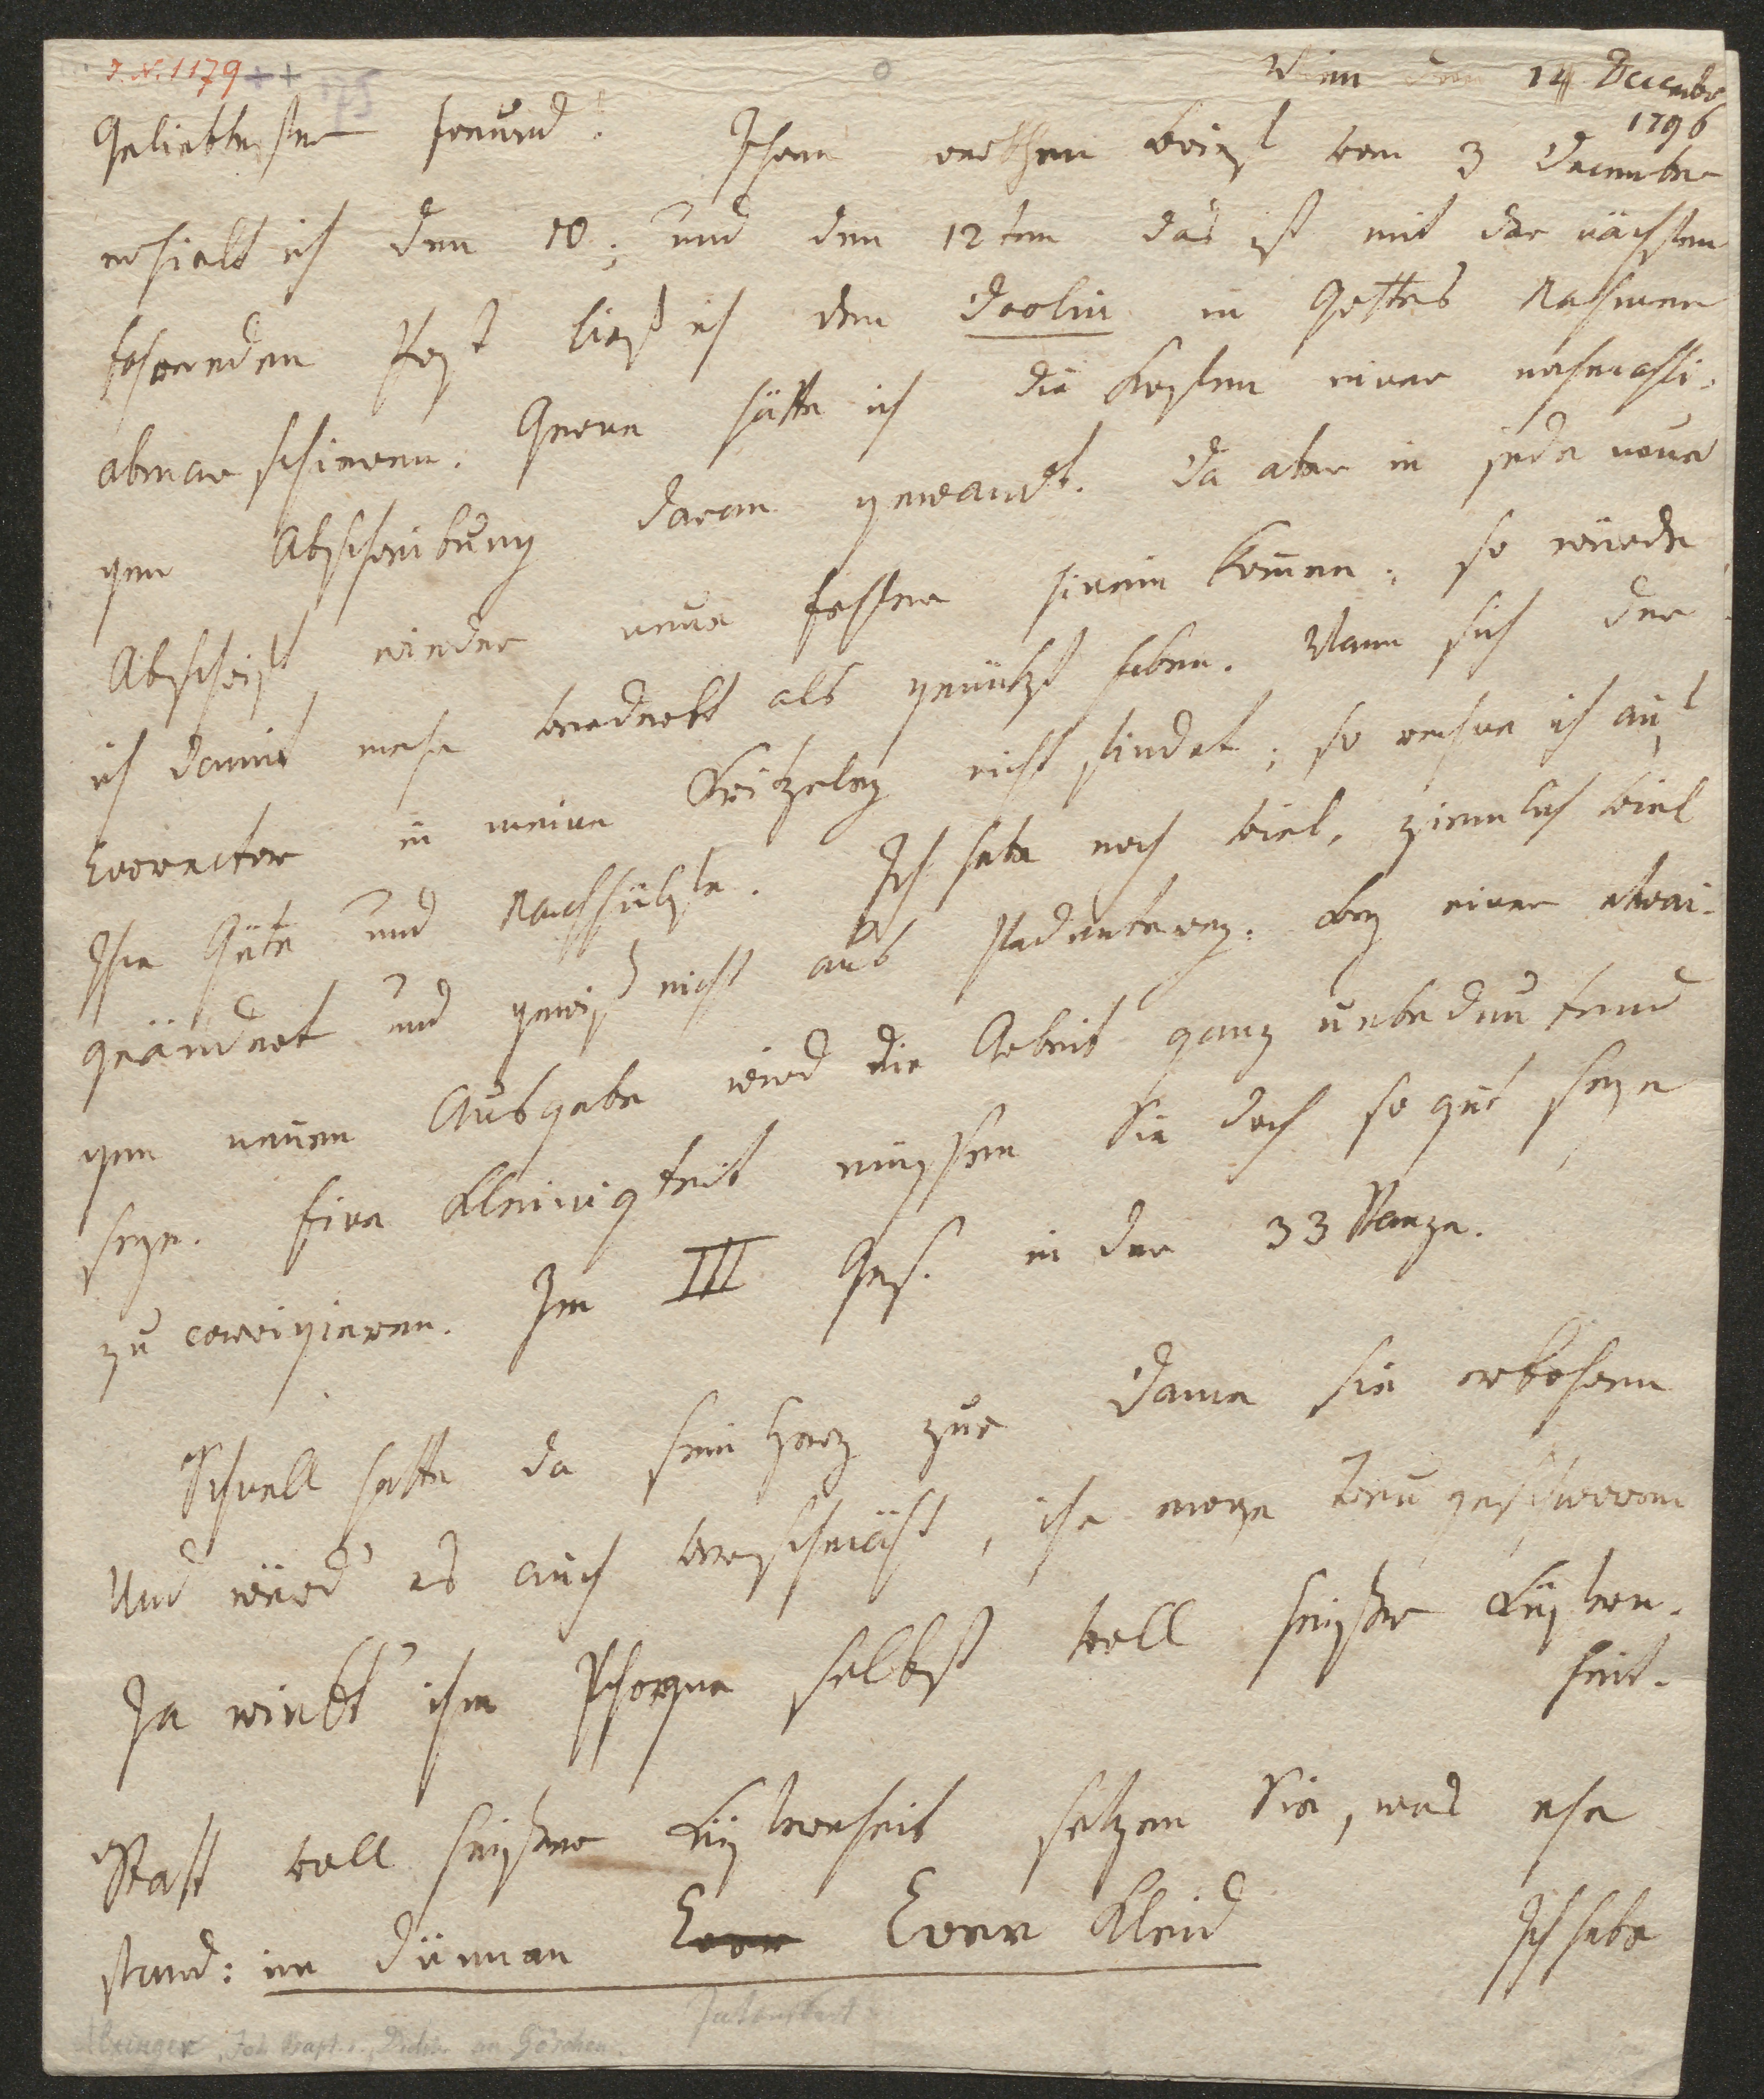 I.N. 1179
175
Wien den 14 Decembr
1796
Geliebtester Freund! Ihren werthen Brief vom 3 December
erhielt ich den 10; und den 12ten das ist mit der nächsten
fahrenden Post ließ ich den Doolin in Gottes Nahmen
abmarschieren. Gerne hätte ich die Kosten einer nochmahli-
gen Abschreibung daran gewandt. Da aber in jede neue
Abschrift wieder neue Fehler hinein kom̄en; so würde
ich damit mehr verderbt als genützt haben. Wann sich der
Corrector in meine Kritzeley nicht findet; so rechne ich auf
Ihre Güte und Nachhülfe. Ich habe noch viel, ziemlich viel
geändert und gewiß nicht aus Pedanterey. Bey einer etwai-
gen neuen Ausgabe wird die Arbeit ganz unbedeutend
seyn. Eine Kleinigkeit müssen Sie doch so gut seyn
zu corrigieren. Im III Ges. in der 33 Stanze.
Schnell hatte da sein Herz zur Dame sie erkohren
Und würd' es auch verschmäht, ihr ewge Treu geschworen
Ja winkt' ihm Phryne selbst voll heißer Lüstern-
heit.
Statt voll heißer Lüsternheit setzen Sie, was ehe
stand: im dünnen Coer Coer Kleid Ich habe
Alxinger, Joh. Bapt. v., Dichter an Göschen.